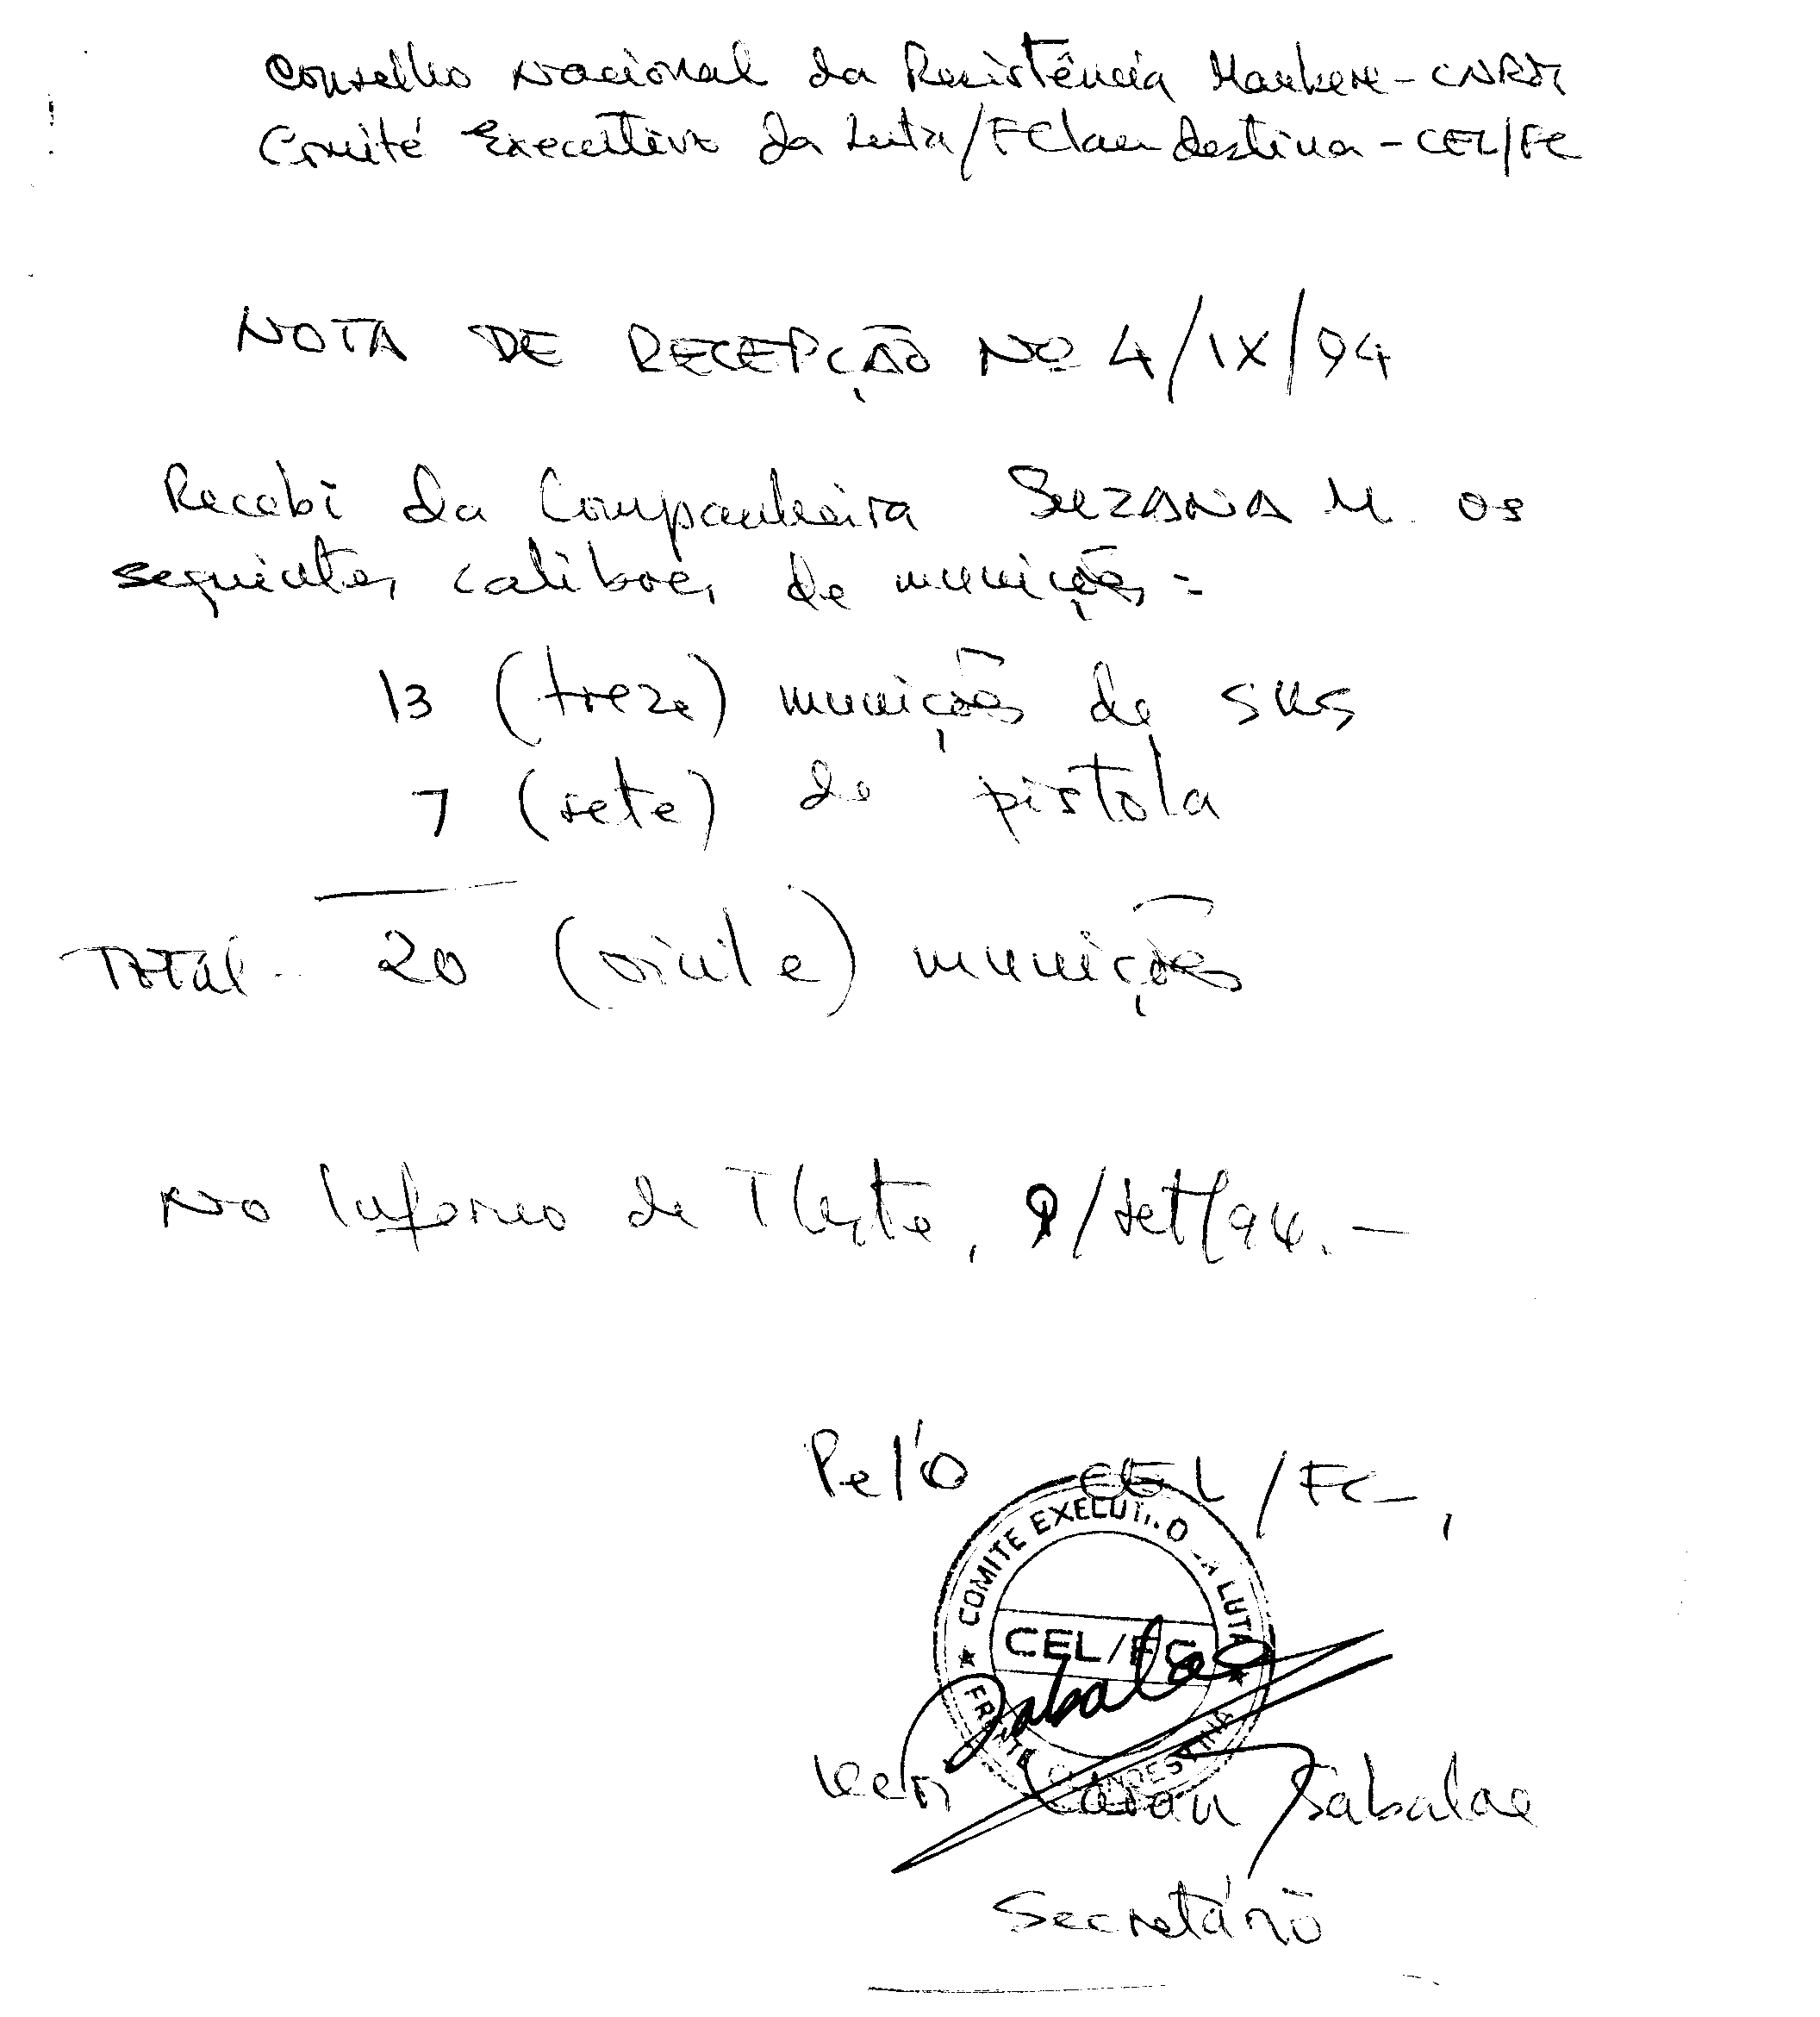 Conselho Nacional da Resistência Maubere - CNRM
Comité Executivo da Luta/FClandestina - CEL/FC
NOTA DE RECEPÇÃO Nº 4/IX/94
Recebi da Companheira SUZANA M. os
seguintes calibres de munições =
13 (treze) munições de SKS
7 (sete) de pistola
TOTAL - 20 (vinte) munições
No Inferno de TLeste, 9/set/94. -
Pel'O CEL/FC,
COMITE EXECUTIVO DA LUTA
CEL/FC
FRENTE CLANDESTINA
Sabalae
Keri Laran Sabalae
Secretário